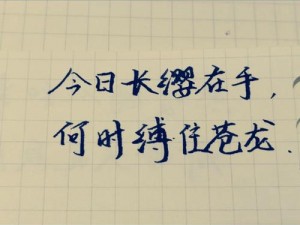 今日长缨在手，
何时缚住苍龙．